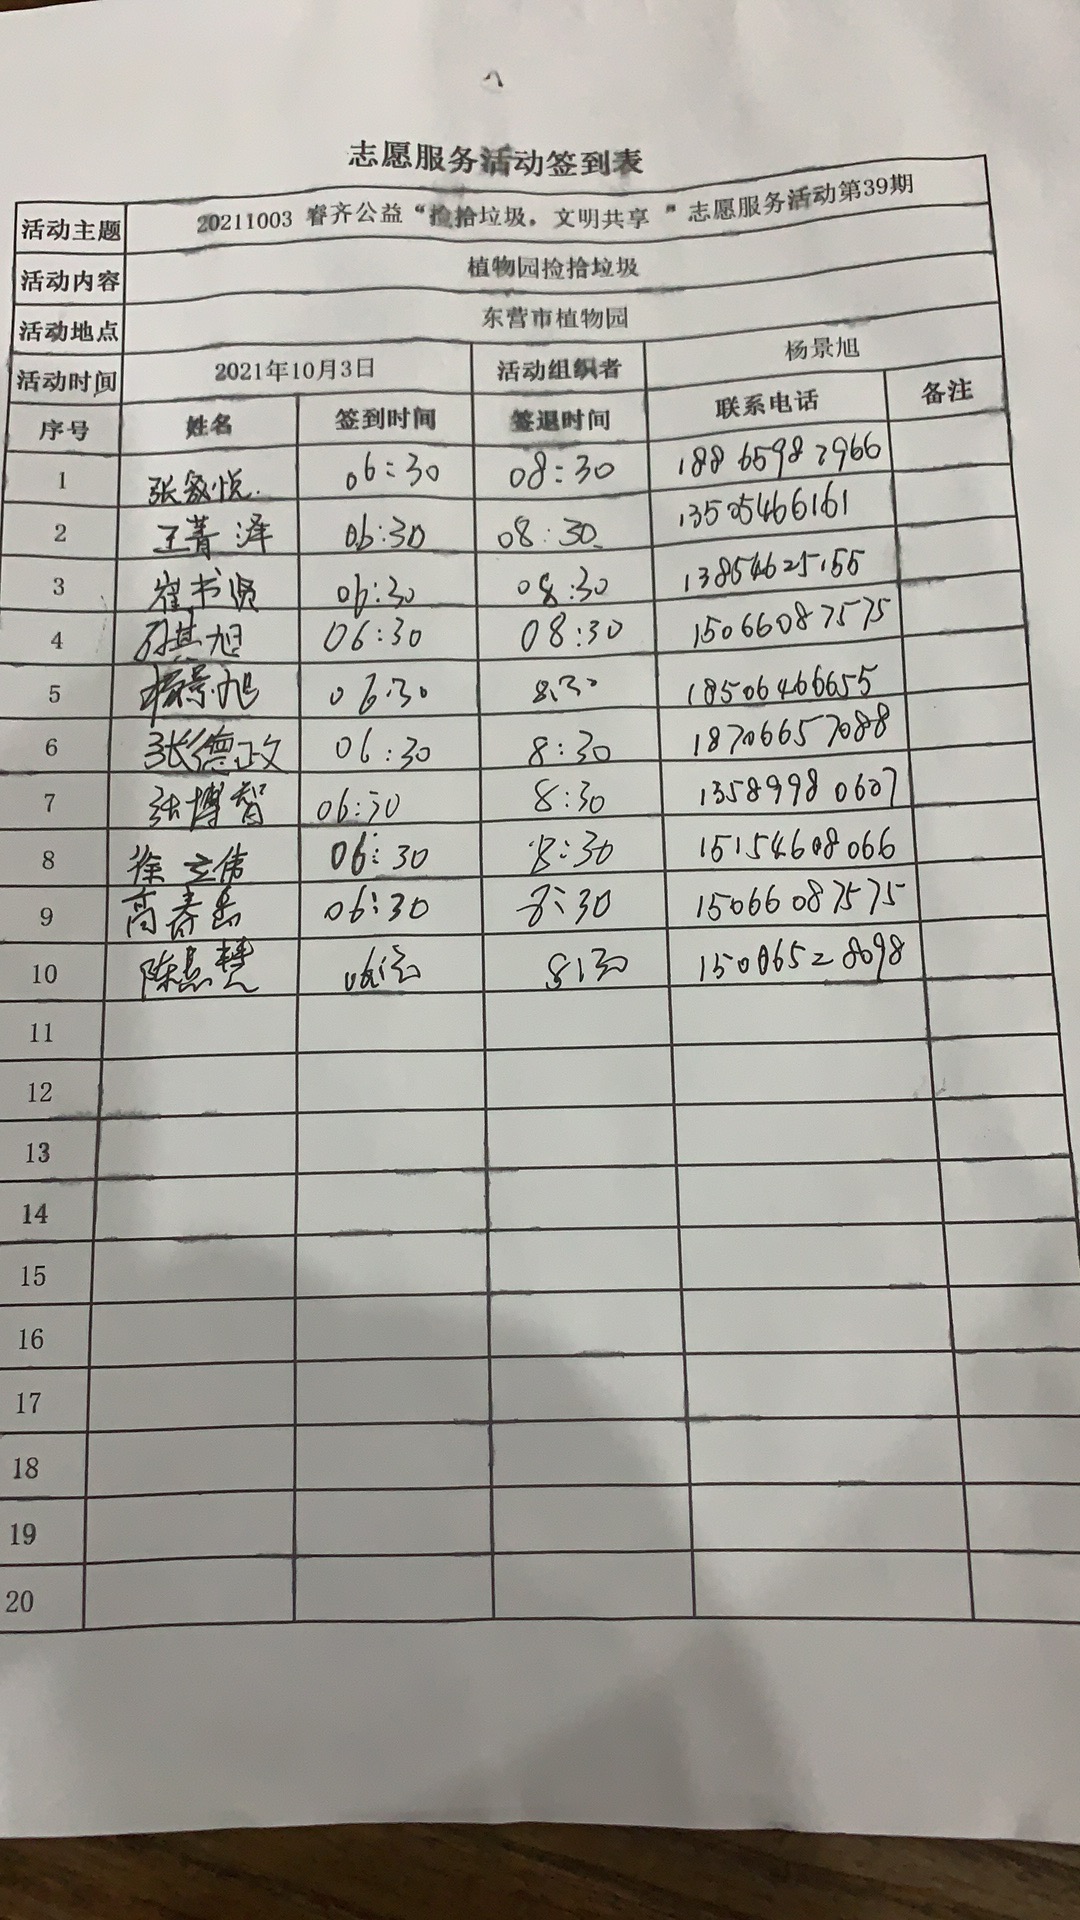 志愿服务活动签到表
活动主题 20211003 睿齐公益“捡拾垃圾，文明共享 ”志愿服务活动第39期
活动内容 植物园捡拾垃圾
活动地点 东营市植物园
活动时间 2021年10月3日 活动组织者 杨景旭
序号 姓名 签到时间 签退时间 联系电话 备注
1 张敏悦 06:30 08:30 18865982966
2 王菁泽 06:30 08:30 13505466161
3 崔书贤 06:30 08:30 13854625155
4 孙其旭 06:30 08:30 15066087575
5 杨景旭 06:30 8:30 18506466655
6 张德政 06:30 8:30 18706657088
7 张博智 06:30 8:30 13589980607
8 徐立伟 06:30 8:30 15154608066
9 高春 06:30 8:30 15066087575
10 陈慧 06:30 8:30
11
12
13
14
15
16
17
18
19
20